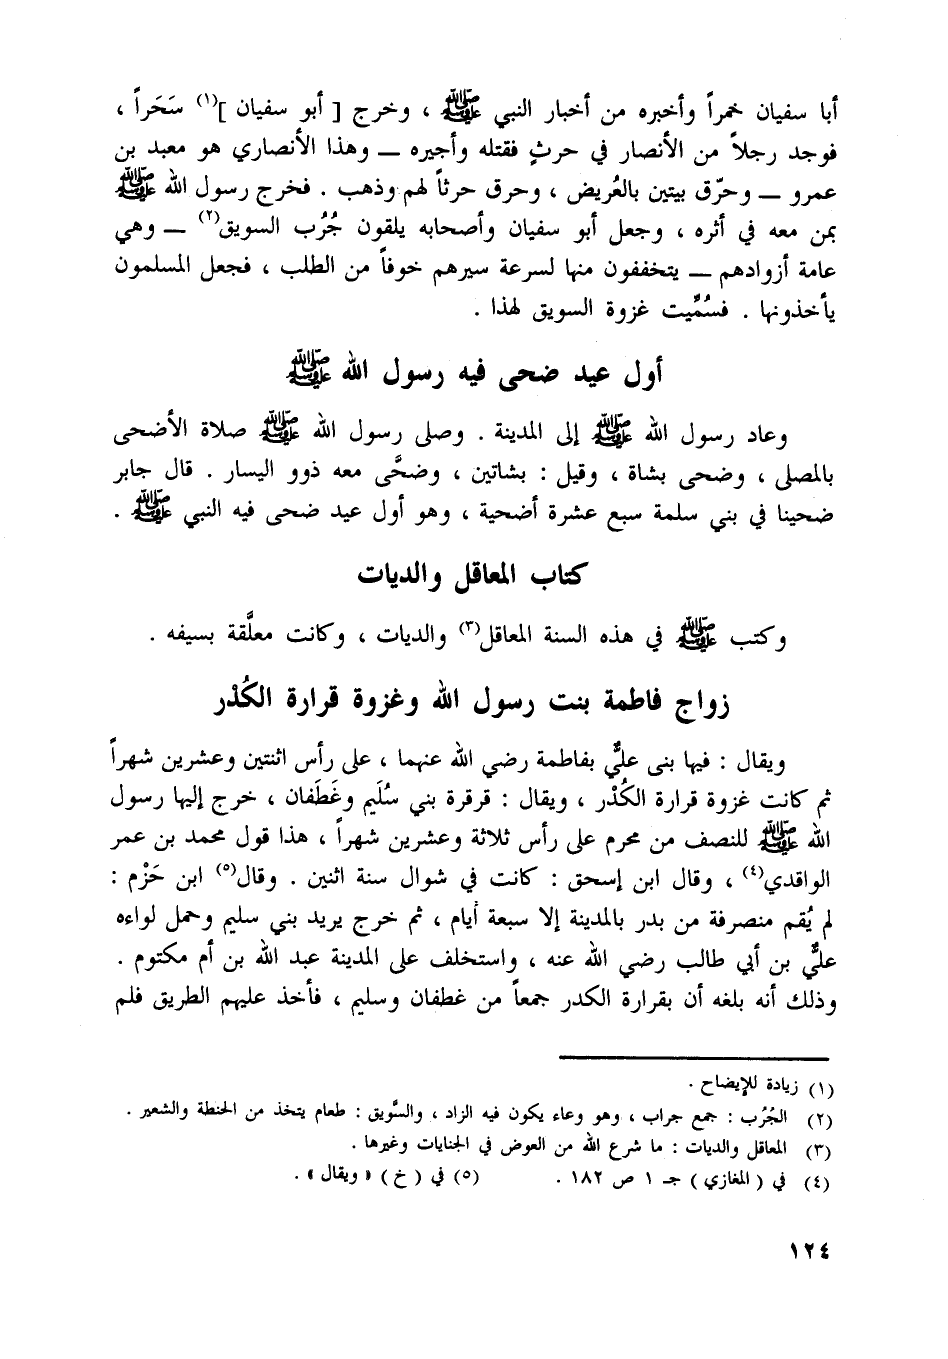 أبا سفيان خمراً وأخبره من أخبار النبي ﷺ ، وخرج [ أبو سفيان ]⁽١⁾ سَحَراً ،
فوجد رجلاً من الأنصار في حرثٍ فقتله وأجيره — وهذا الأنصاري هو معبد بن
عمرو — وحرّق بيتين بالعُريض ، وحرق حرثاً لهم وذهب . فخرج رسول الله ﷺ
بمن معه في أثره ، وجعل أبو سفيان وأصحابه يلقون جُرُب السويق⁽٢⁾ — وهي
عامة أزوادهم — يتخففون منها لسرعة سيرهم خوفاً من الطلب ، فجعل المسلمون
يأخذونها . فسُمِّيت غزوة السويق لهذا .
أول عيد ضحى فيه رسول الله ﷺ
وعاد رسول الله ﷺ إلى المدينة . وصلى رسول الله ﷺ صلاة الأضحى
بالمصلى ، وضحى بشاة ، وقيل : بشاتين ، وضحَّى معه ذوو اليسار . قال جابر
ضحينا في بني سلمة سبع عشرة أضحية ، وهو أول عيد ضحى فيه النبي ﷺ .
كتاب المعاقل والديات
وكتب ﷺ في هذه السنة المعاقل⁽٣⁾ والديات ، وكانت معلَّقة بسيفه .
زواج فاطمة بنت رسول الله وغزوة قرارة الكُدْر
ويقال : فيها بنى عليٌّ بفاطمة رضي الله عنهما ، على رأس اثنتين وعشرين شهراً
ثم كانت غزوة قرارة الكُدْر ، ويقال : قرقرة بني سُلَيم وغَطَفان ، خرج إليها رسول
الله ﷺ للنصف من محرم على رأس ثلاثة وعشرين شهراً ، هذا قول محمد بن عمر
الواقدي⁽٤⁾ ، وقال ابن إسحق : كانت في شوال سنة اثنين . وقال⁽٥⁾ ابن حَزْم :
لم يُقم منصرفة من بدر بالمدينة إلا سبعة أيام ، ثم خرج يريد بني سليم وحمل لواءه
عليٌّ بن أبي طالب رضي الله عنه ، واستخلف على المدينة عبد الله بن أم مكتوم .
وذلك أنه بلغه أن بقرارة الكدر جمعاً من غطفان وسليم ، فأخذ عليهم الطريق فلم
(١) زيادة للإيضاح .
(٢) الجُرُب : جمع جراب ، وهو وعاء يكون فيه الزاد ، والسَّويق : طعام يتخذ من الحنطة والشعير .
(٣) المعاقل والديات : ما شرع الله من العوض في الجنايات وغيرها .
(٤) في ( المغازي ) جـ ١ ص ١٨٢ . (٥) في ( خ ) « ويقال » .
١٢٤